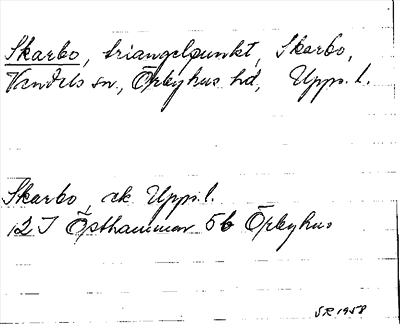 Skarbo, triangelpunkt, Skarbo,
Vendels sn., Örbyhus hd, Upps. l.
Skarbo, ek Upps. l.
12 I Östhammar 5b Örbyhus
SR 1958